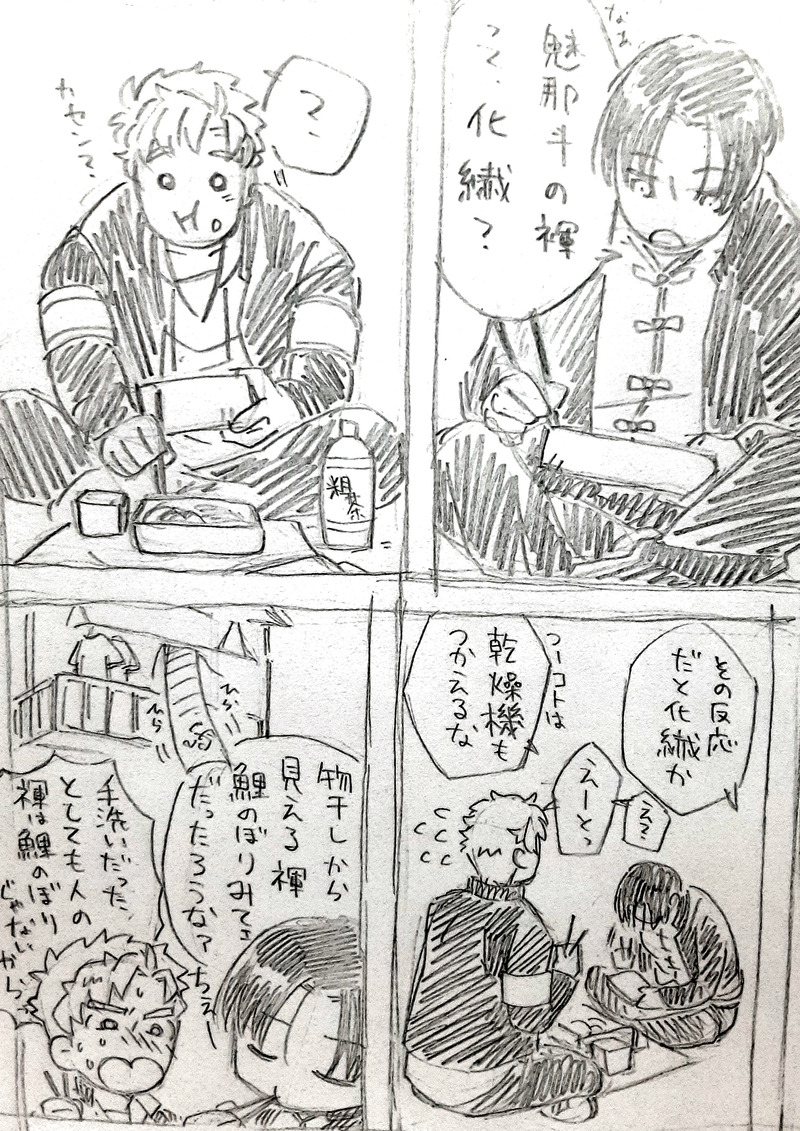 なぁ
魅那斗の褌
って、化繊？
？
カセンて、
粗茶
その反応
だと化繊か
つーコトは
乾燥機も
つかえるな
え？
えーとっ
物干しから
見える褌
鯉のぼりみてェ
だったろうな？
ちぇー
ひらり
ひらり
手洗いだった、
としても人の
褌は鯉のぼり
じゃないから、